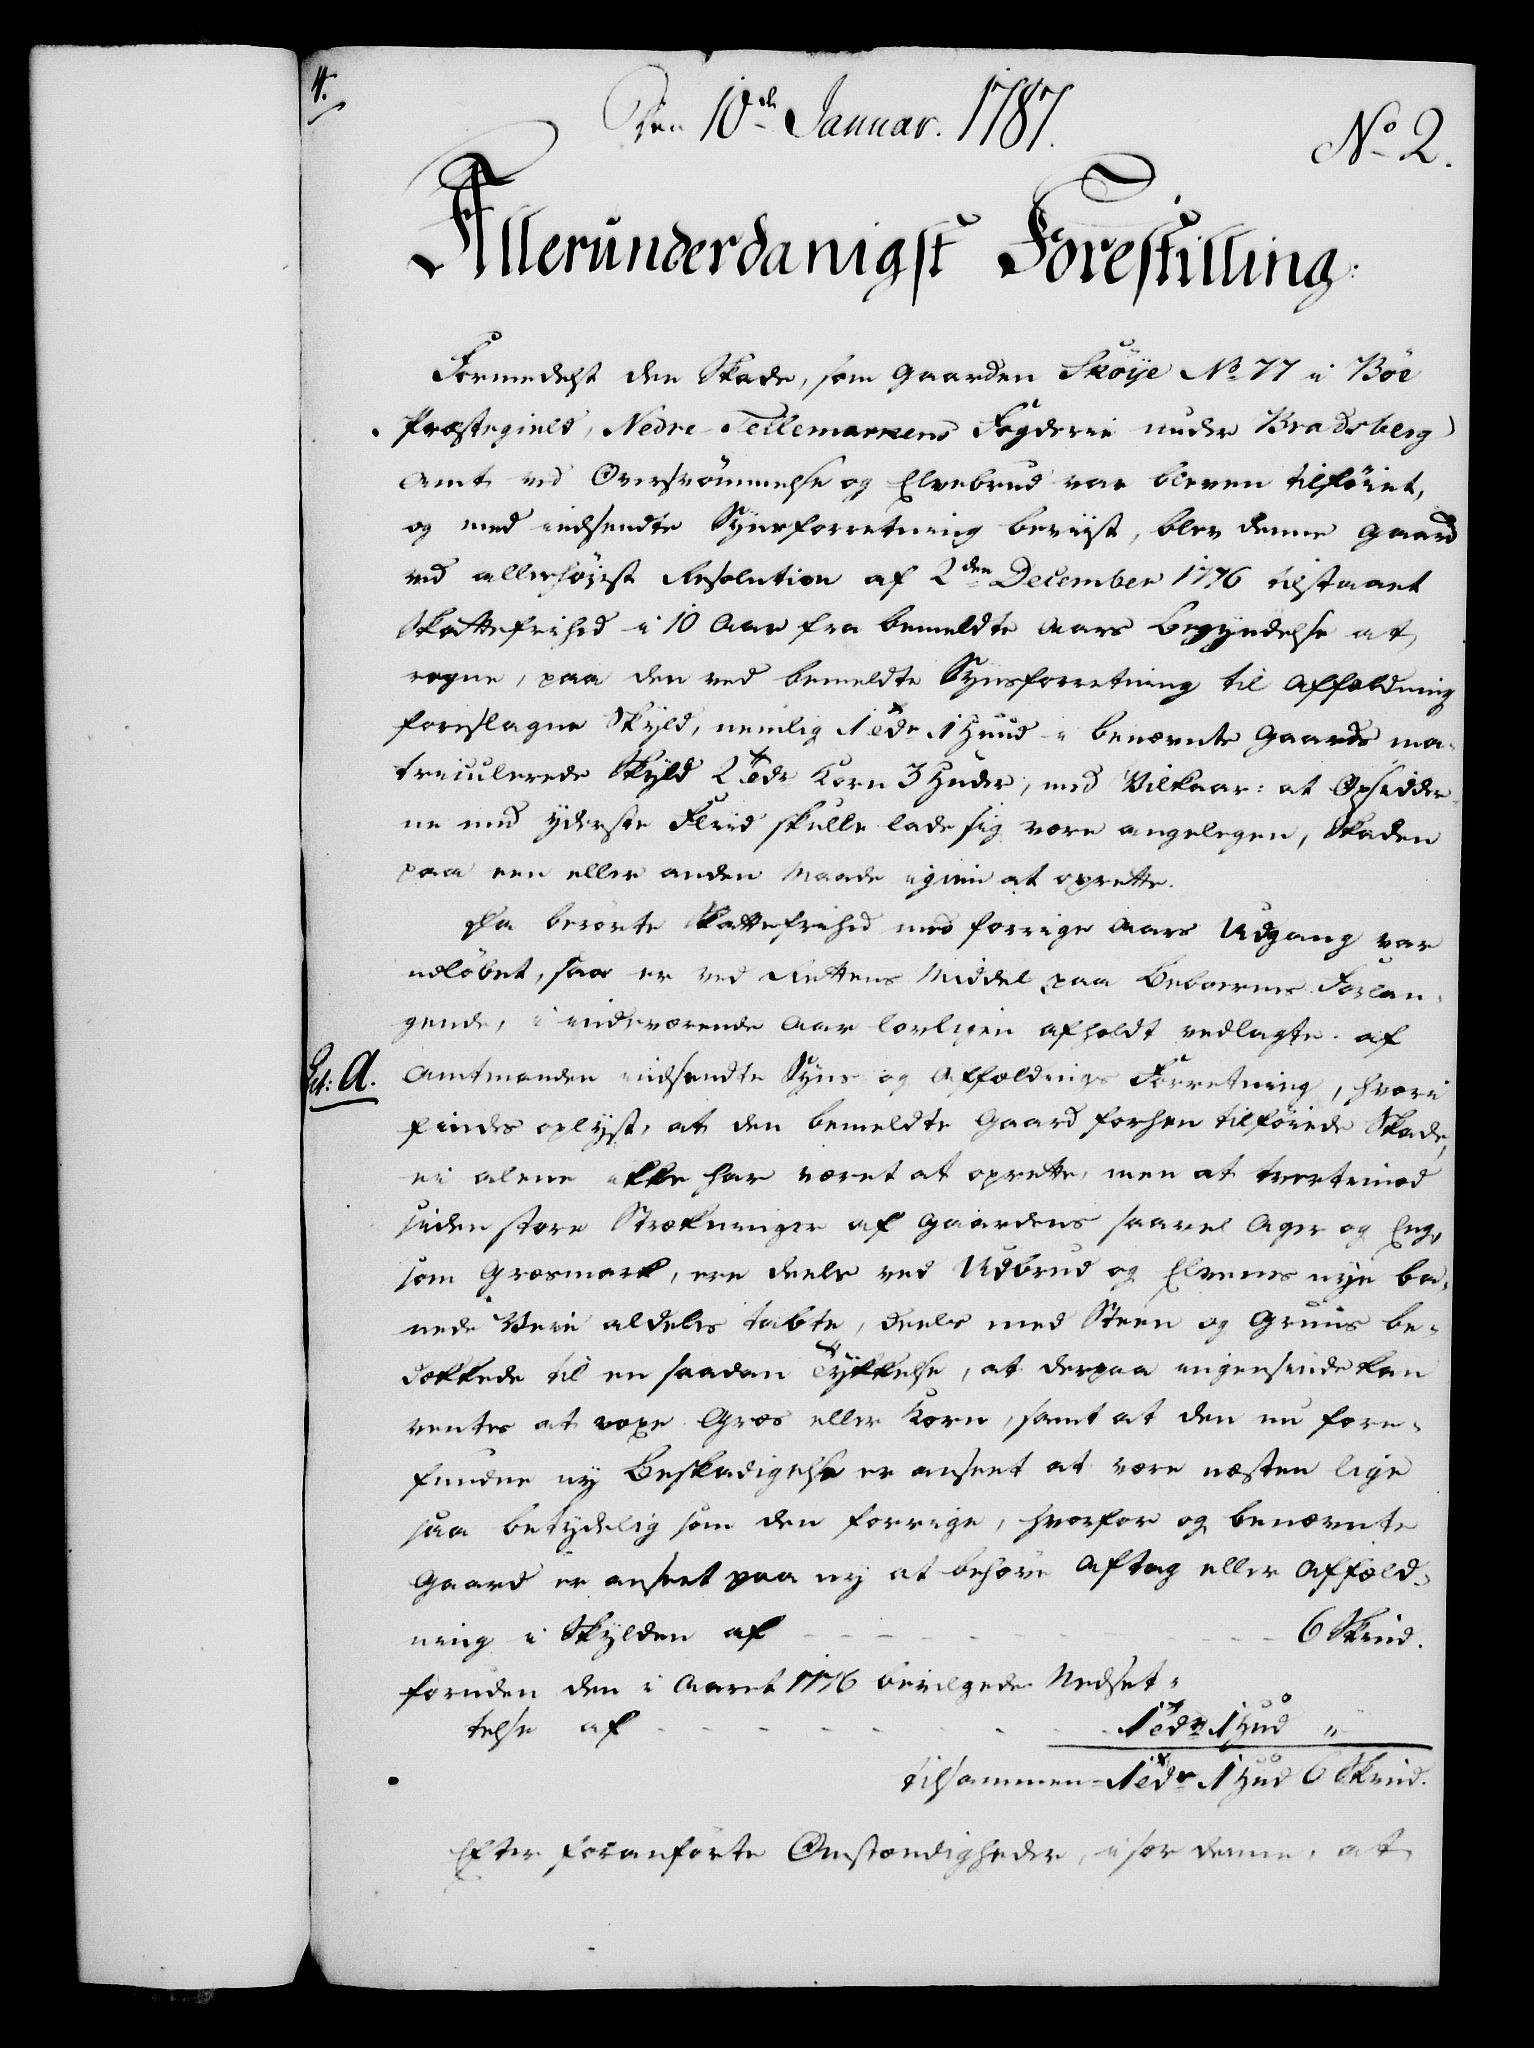 4.
Den 10de Januar. 1787.
No 2.
Allerunderdanigst Forestilling:
Formedelst den Skade, som Gaarden Sköÿe No 77 i Böe
Præstegield, Nedre Tellemarkens Fogderie under Bradsberg
Amt ved Oversvömmelse og Elvebrud var bleven tilföiet,
og med indsendte Synsforretning beviist, blev denne Gaard
ved allerhöiest Resolution af 2den December 1776 tilstaaet
Skattefrihed i 10 Aar fra bemeldte Aars Begyndelse at
regne, paa den ved bemeldte Synsforretning til Affældning
foreslagne Skyld, nemlig 1 Tdr 1 Huud i benævnte Gaards ma-
triculerede Skyld 2 Tdr Korn 3 Huder, med Vilkaar: at Opsidder-
ne med yderste Fliid skulle lade sig være angelegen, Skaden
paa een eller anden Maade igien at oprette.
Da berörte Skattefrihed med forrige Aars Udgang var
udlöbet, saa er ved Rettens Middel paa Beboernes Forlan-
gende, i indeværende Aar lovligen afholdt vedlagte af
Lit: A.
Amtmanden indsendte Syns og Affældnings Forretning, hvori
findes oplyst, at den bemeldte Gaard forhen tilföiede Skade,
ei alene ikke har været at oprette, men at tvertimod
siden store Strækninger af Gaardens saavel Ager og Eng,
som Græsmark, ere deels ved Udbrud og Elvens nye ba-
nede Veie aldeles tabte, deels med Steen og Gruus be-
dækkede til en saadan Tykkelse, at derpaa ingensinde kan
ventes at voxe Græs eller Korn, samt at den nu fore-
fundne ny Beskadigelse er anseet at være næsten lige
saa betydelig som den forrige, hvorfor og benævnte
Gaard er anseet paa ny at behöve Aftag eller Affæld-
ning i Skylden af - - - - - - - - 6 Skind.
foruden den i Aaret 1776 bevilgede Nedsæt-
telse af - - - - - - - 1 Tdr 1 Hud "
tilsammen = 1 Tdr 1 Hud 6 Skind.
Efter foranförte Omstændigheder, især denne, at